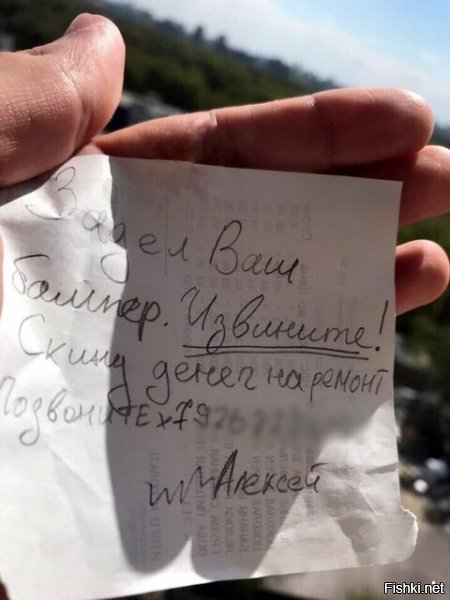 Задел Ваш
бампер. Извините!
Скину денег на ремонт
Позвоните +79
Алексей
Fishki.net